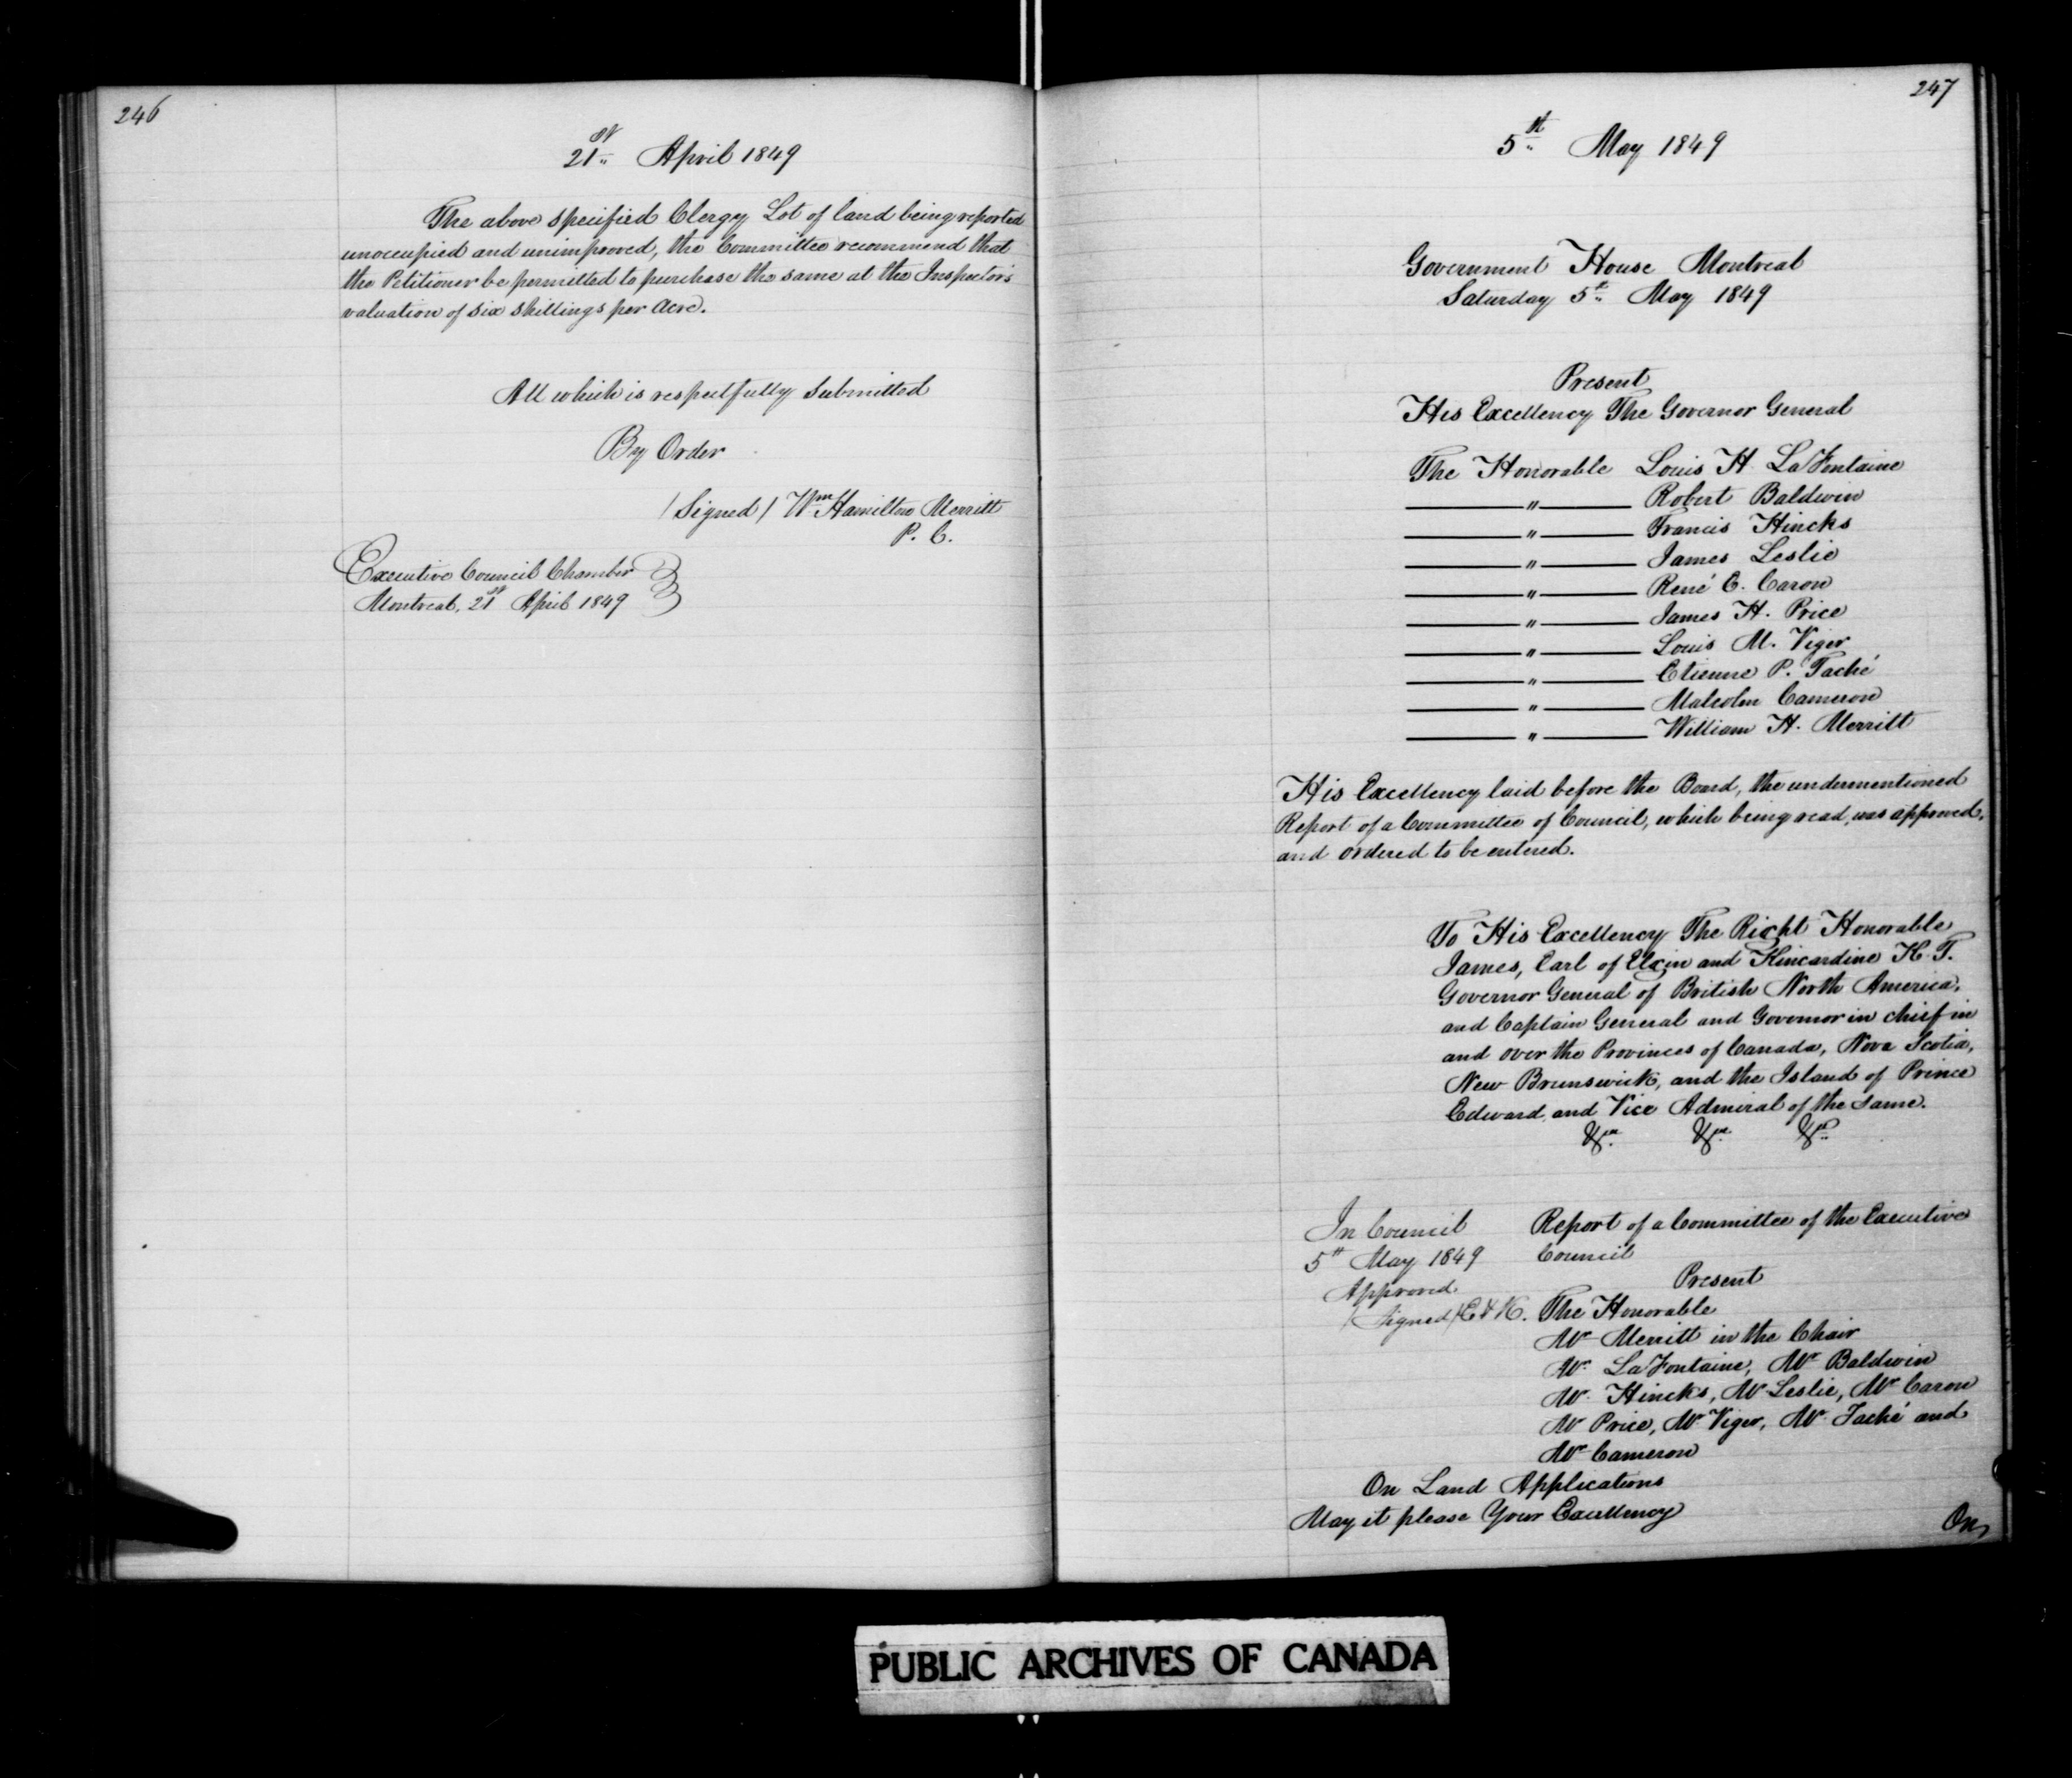 246
21st April 1849
The above specified Clergy Lot of land being reported
unoccupied and unimproved, the Committee recommend that
the Petitioner be permitted to purchase the same at the Inspector's
valuation of six shillings per Acre.
All which is respectfully submitted
By Order
/Signed/ Wm Hamilton Merritt
P. C.
Executive Council Chamber
Montreal, 21st April 1849
247
5th May 1849
Government House Montreal
Saturday 5th May 1849
Present
His Excellency The Governor General
The Honorable Louis H. LaFontaine
" Robert Baldwin
" Francis Hincks
" James Leslie
" René E. Caron
" James H. Price
" Louis M. Viger
" Etienne P. Taché
" Malcolm Cameron
" William H. Merritt
His Excellency laid before the Board, the undermentioned
Report of a Committee of Council, which being read, was approved,
and ordered to be entered.
To His Excellency The Right Honorable
James, Earl of Elgin and Kincardine K. T.
Governor General of British North America,
and Captain General and Governor in chief in
and over the Provinces of Canada, Nova Scotia,
New Brunswick, and the Island of Prince
Edward, and Vice Admiral of the same.
&c. &c. &c.
In Council
5th May 1849
Approved
/Signed/ E & K.
Report of a Committee of the Executive
Council
Present
The Honorable
Mr Merritt in the Chair
Mr. LaFontaine, Mr Baldwin
Mr. Hincks, Mr Leslie, Mr Caron
Mr Price, Mr Viger, Mr. Taché and
Mr Cameron
On Land Applications
May it please Your Excellency
On
PUBLIC ARCHIVES OF CANADA